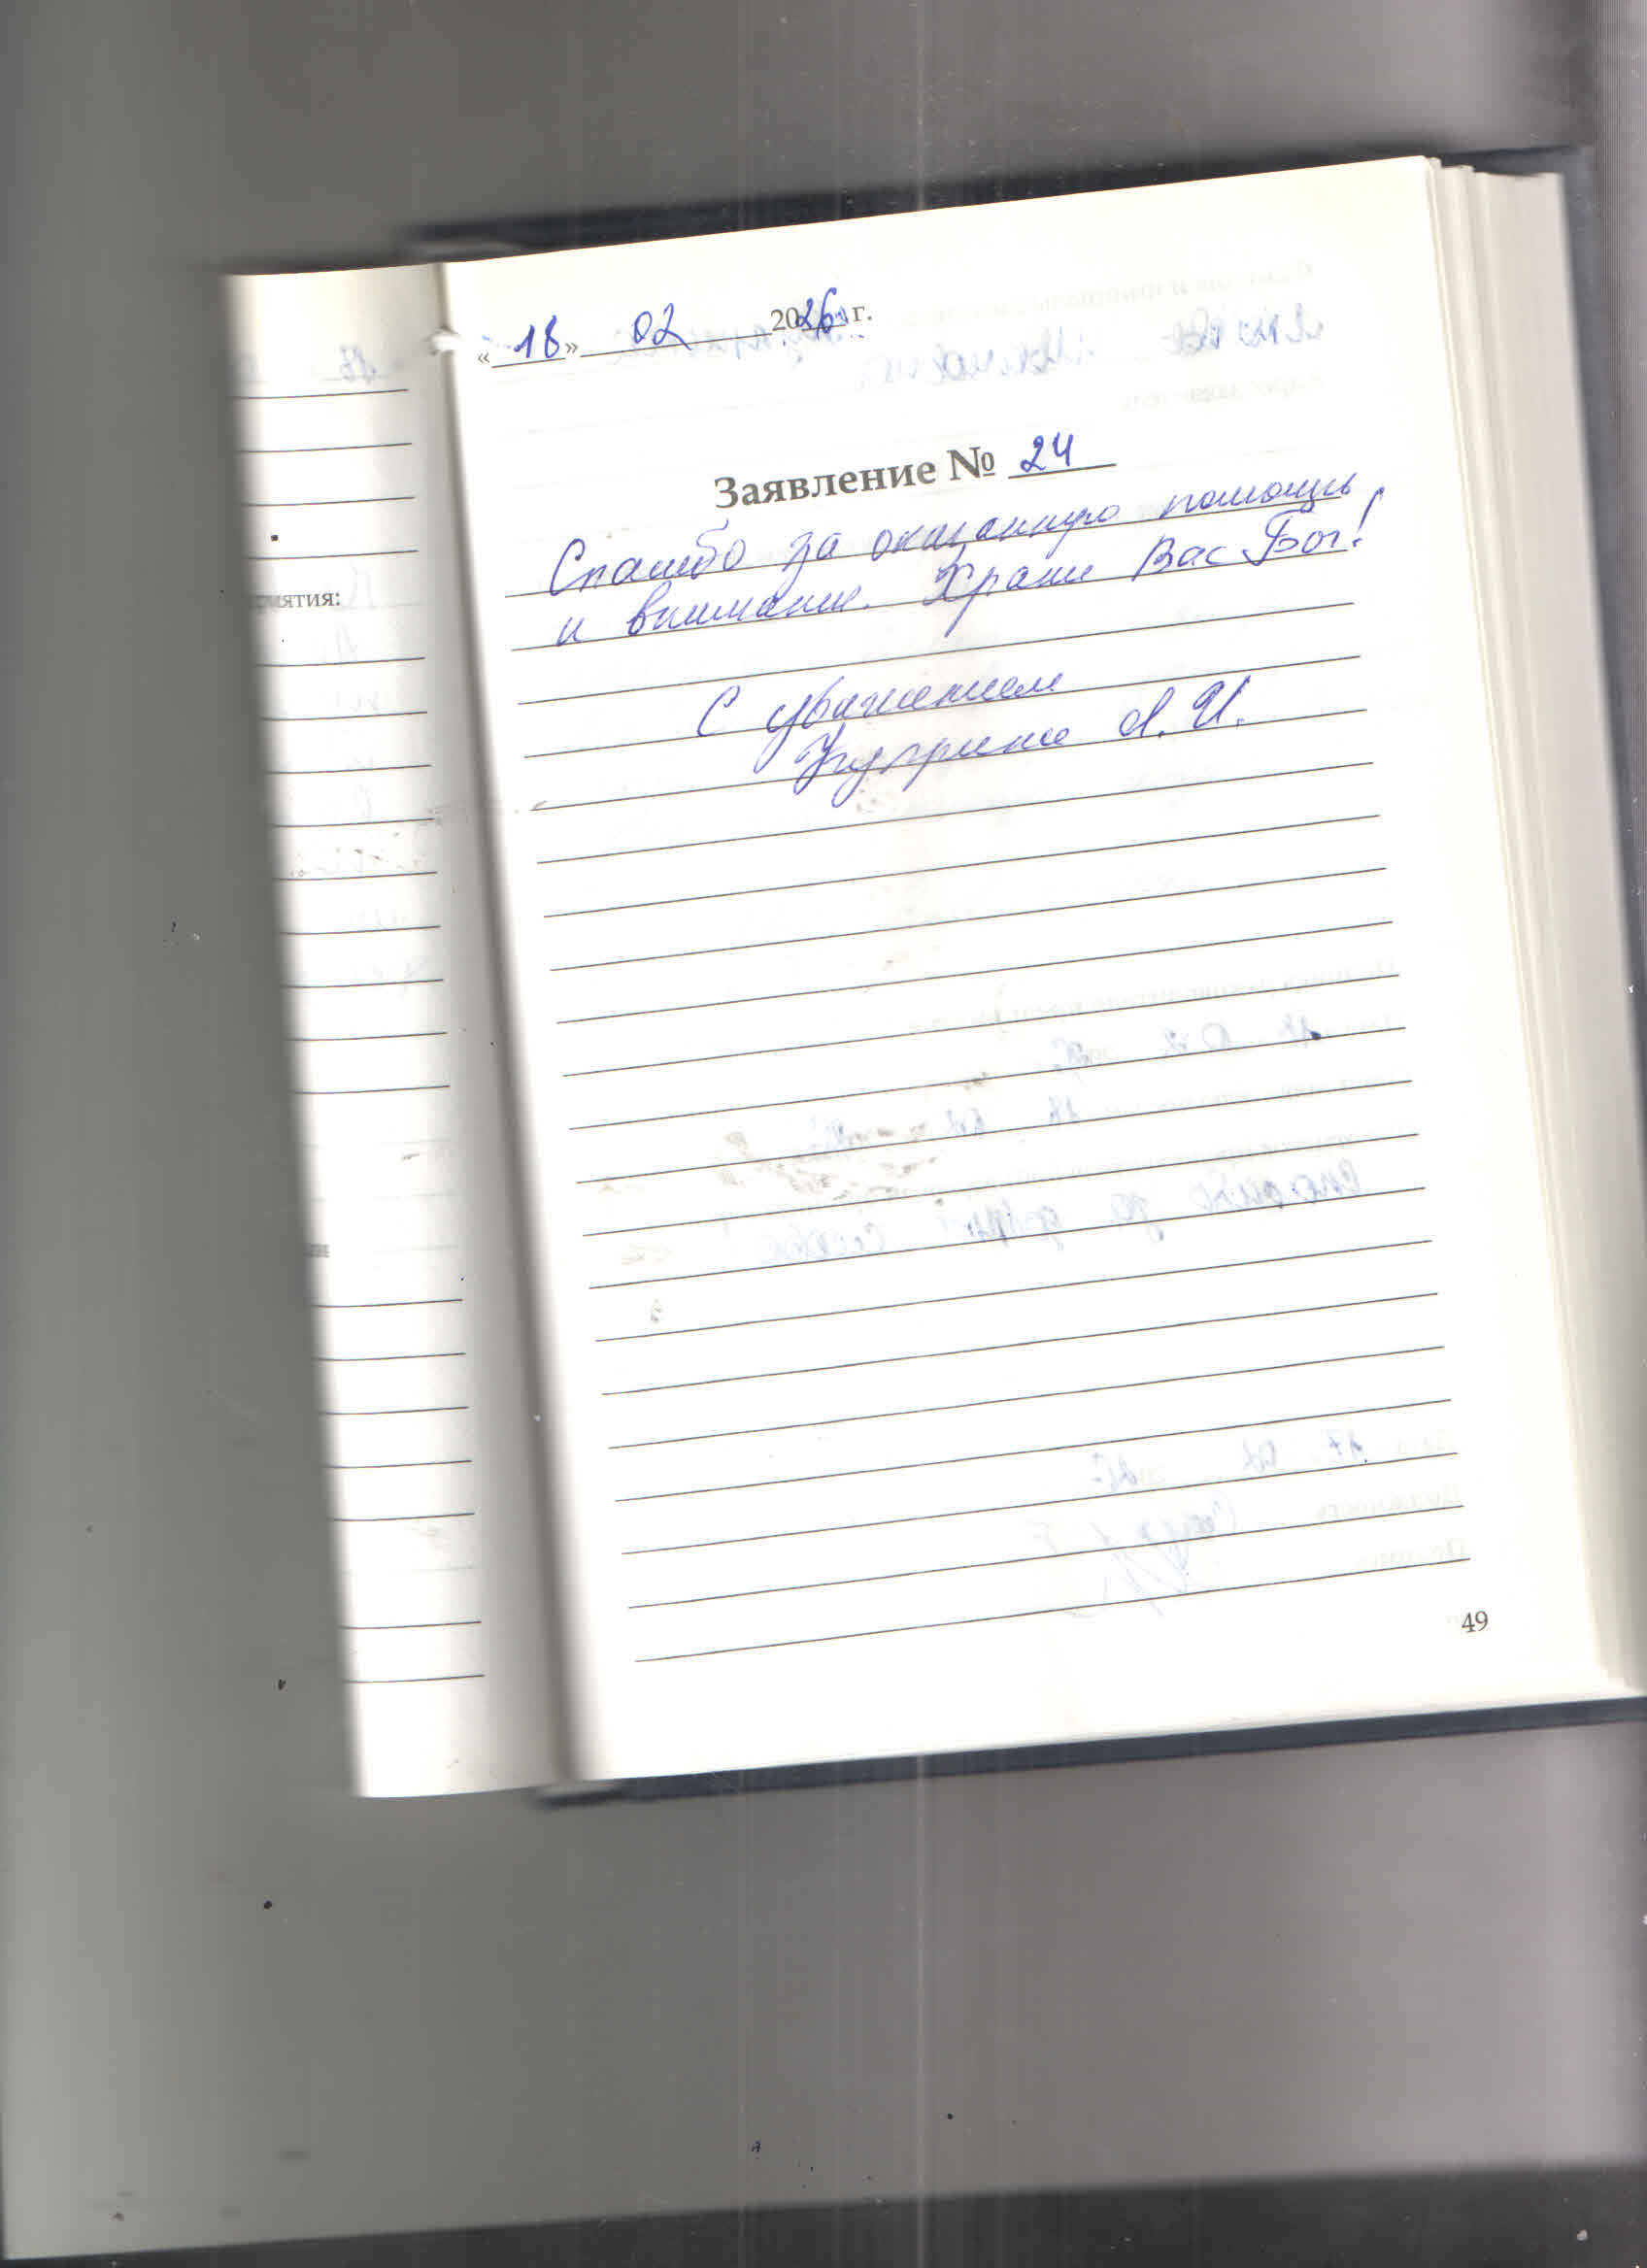 «18» 02 2026 г.
Заявление № 24
Спасибо за оказанную помощь
и внимание. Храни Вас Бог!
С уважением
А. И.
49